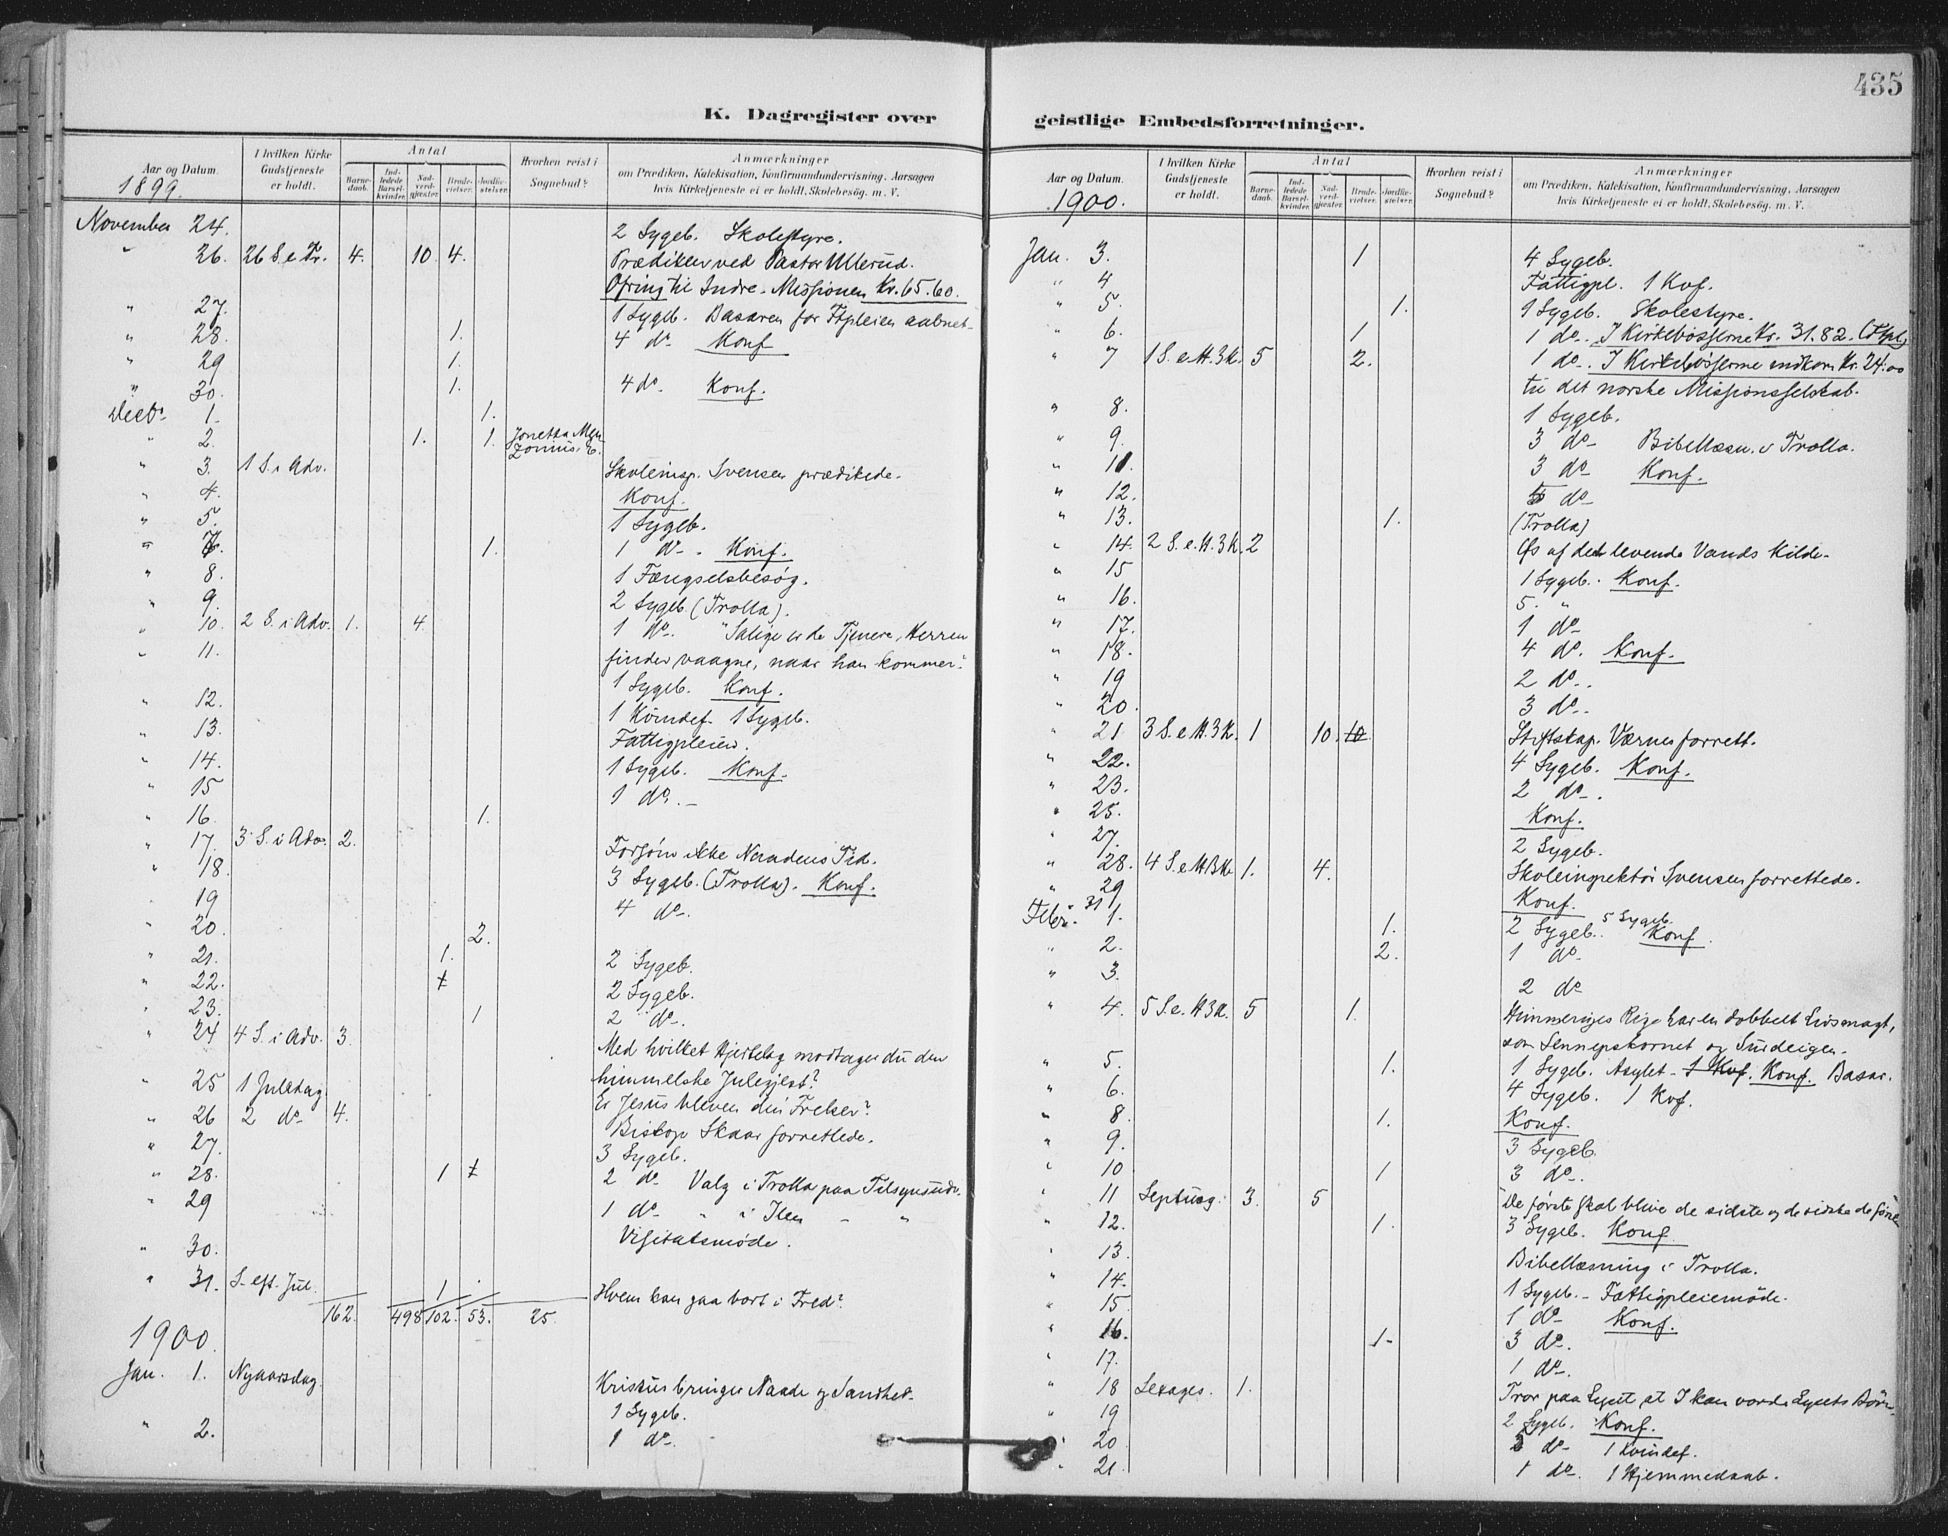 435
K. Dagregister over geistlige Embedsforretninger.
Aar og Datum. I hvilken Kirke Gudstjeneste er holdt. Antal Barnedaab. Indledede Barselkvinder. Nadverdgjester. Brudevielser. Jordfæstelser. Hvorhen reist i Sognebud? Anmærkninger om Prædiken, Katekisation, Konfirmandundervisning, Aarsagen hvis Kirketjeneste ei er holdt, Skolebesøg. m. V.
1899.
November 24. 2 Sygeb. Skolestyre.
" 26. 26 S. e. Tr. 4. 10 4. Prædiken ved Pastor Ullerud.
Ofring til Indre-Missionen Kr. 65.60.
" 27. 1 Sygeb. Basaren for Ftpleien aabnet.
" 28. 1. 4 do. Konf
" 29 1.
" 30. 1. 4 do. Konf.
Decbr 1. 1.
" 2. 1. 1. Jonetta
" 3. 1 S. i Adv. Skoleinsp. Svensen prædikede.
" 4. Konf.
" 5. 1 Sygeb.
" 1. 1 do. Konf.
" 8. 1 Fængselsbesøg.
" 9. 2 Sygeb (Trolla).
" 10. 2 S. i Adv. 1. 4. 1 do. "Salige er de Tjenere, Herren
" 11. finder vaagne, naar han kommer."
1 Sygeb. Konf.
" 12. 1 Kvindef. 1 Sygeb.
" 13. Fattigpleien.
" 14. 1 Sygeb. Konf.
" 15 1 do.
" 16. 1.
" 17. 3 S. i Adv. 2. Forsøm ikke Naadens Tid.
" 18. 3 Sygeb. (Trolla). Konf.
19 4 do.
" 20. 2.
" 21. 1. 2 Sygeb.
" 22. 1 2 Sygeb.
" 23. 1 2 do.
" 24 4 S. i Adv. 3. Med hvilket Hjertelag modtager du den
himmelske Julegjest?
" 25 1 Juledag Er Jesus bleven din Frelser?
" 26 2 do 4. Biskop Skaar forrettede.
" 27. 3 Sygeb.
" 28. 1 1 2 do Valg i Trolla paa Tilsynsudv.
" 29 1 do " i Ilen - "
" 30. Visitatsmøde.
" 31. S. eft. Jul. 1 Hvem kan gaa bort i Fred?
162. 498 102. 53. 25.
1900.
Jan. 1. Nyaarsdag. Kristus bringer Naade og Sandhed.
1 Sygeb.
" 2. 1 do.
Aar og Datum. I hvilken Kirke Gudstjeneste er holdt. Antal Barnedaab. Indledede Barselkvinder. Nadverdgjester. Brudevielser. Jordfæstelser. Hvorhen reist i Sognebud? Anmærkninger om Prædiken, Katekisation, Konfirmandundervisning, Aarsagen hvis Kirketjeneste ei er holdt, Skolebesøg. m. V.
1900.
Jan. 3. 1 4 Sygeb.
" 4 Fattigpl. 1 Kvf.
" 5. 1. 1 Sygeb. Skolestyre.
" 6. 1 1 do. I Kirkebøsserne Kr. 31.82. (Ftpl.)
" 7 1 S. e. H. 3 K. 5 2. 1 do. I Kirkebøsserne indkom Kr. 24.00
til det norske Missionsselskab.
" 8. 1 Sygeb.
" 9. 3 do Bibellæsn. i Trolla.
" 11. 3 do Konf.
" 12. do
" 13. 1. (Trolla)
" 14. 2 S. e. H. 3 K. 2 Øs af den levende Vands Kilde.
" 15 1 Sygeb. Konf.
" 16. 5. "
" 17. 1 do
" 18. 4 do. Konf.
" 19 2 do.
" 20. 3 do.
" 21 3 S. e H. 3 K. 1 10. 10. Stiftskap. Værner forrett.
" 22. 4 Sygeb. Konf.
" 23. 2 do.
" 25. Konf.
" 27. 2 Sygeb.
" 28. 4 S. e H 3 K. 1. 4. Skoleinspektør Svensen forrettede.
" 29 Konf.
31 5 Sygeb.
Febr. 1. 1. 2 Sygeb. Konf.
" 2. 2. 1 do.
" 3. 2 do
" 4. 5 S. e. H 3 K. 5 1. Himmeriges Rige har en dobbelt Livsmagt,
som Sennepskornet og Surdeigen.
" 5. 1. 1 Sygeb. Asylet - 1 Kvf. Konf. Basar.
" 6. 4 Sygeb. 1 Kvf.
" 8. 1. Konf.
" 9. 3 Sygeb.
" 10 1 3 do.
" 11 Septuag. 3. 5 De første skal blive de sidste og de sidste de første
" 12. 1. 3 Sygeb. Konf.
" 13. Bibellæsning i Trolla.
" 14. 1 Sygeb. - Fattigpleiemøde.
" 15 1 do Konf.
" 16. 1- 3 do.
" 17. 1 do.
" 18 Sexages. 1. Tror paa Lyset, at I kan vorde Lysets Børn.
" 19 2 Sygeb. Konf.
" 20 2 do 1 Kvindef.
" 21. 1 do. 1 Hjemmedaab.